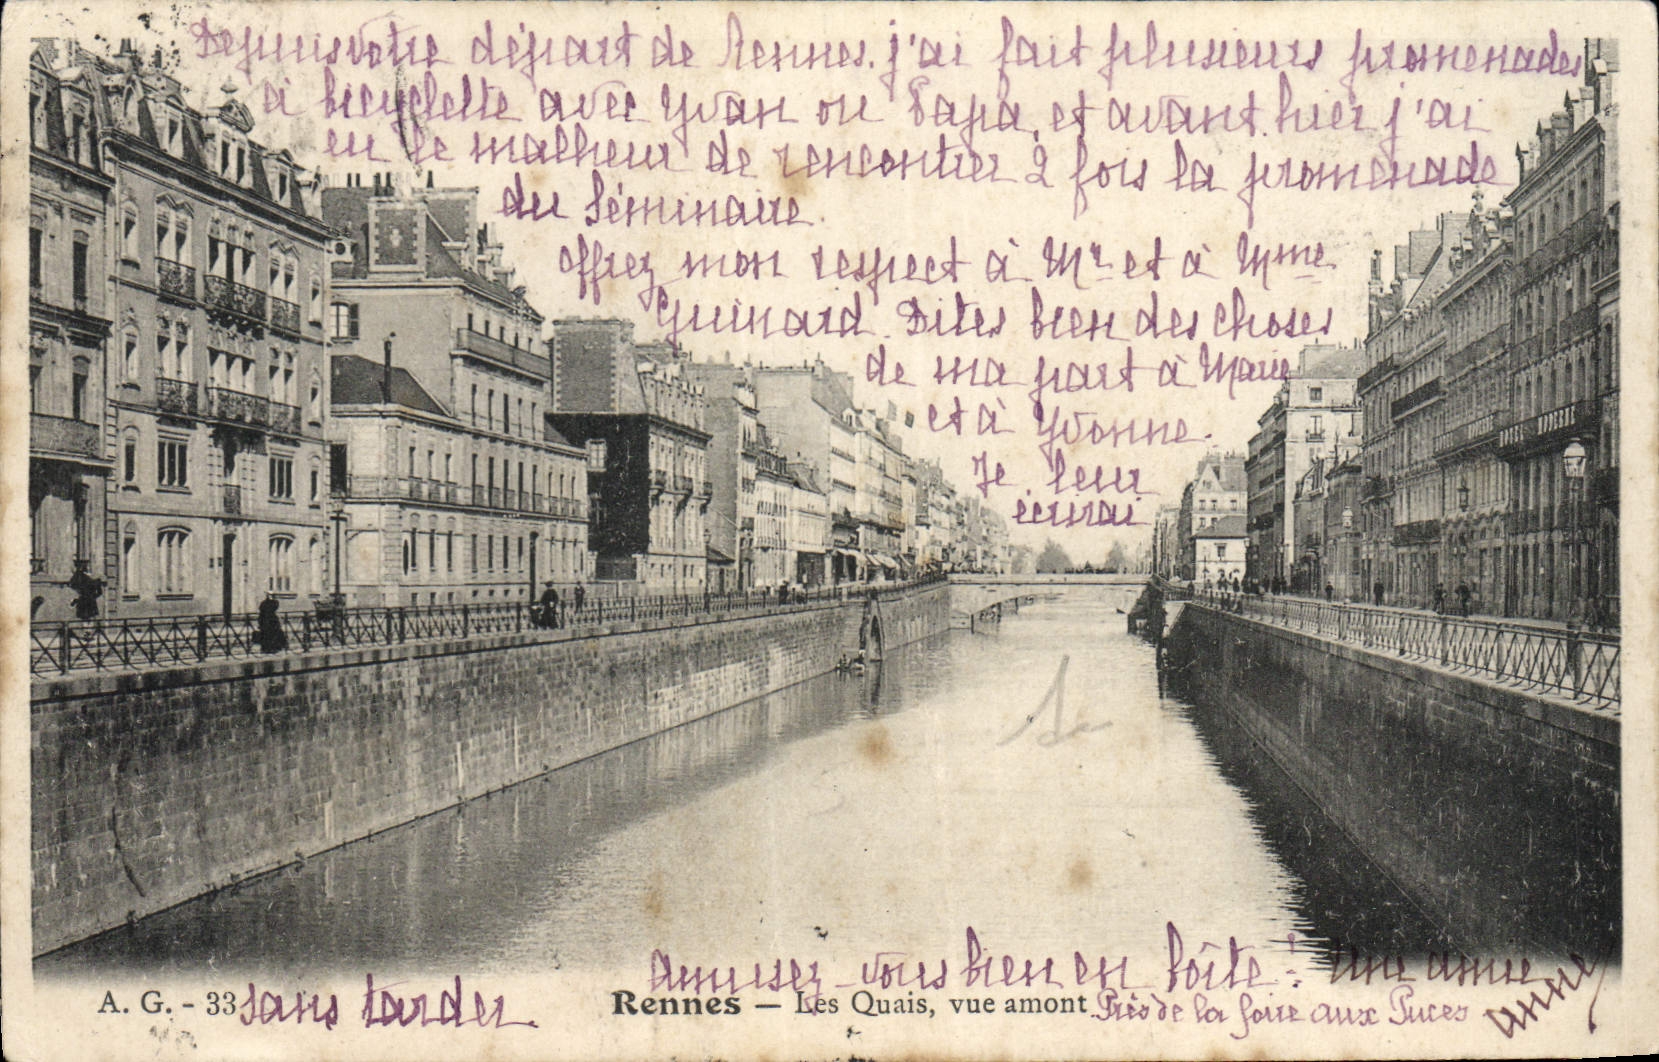 Depuis votre départ de Rennes. j'ai fait plusieurs promenades
à bicyclette avec Yvan ou Papa, et avant hier j'ai
eu le malheur de rencontrer 2 fois la promenade
du Séminaire.
Offrez mon respect à Mr et à Mme
Guinard. Dites bien des choses
de ma part à Marie
et à Yvonne.
Je leur
écrirai
sans tarder.
Amusez-vous bien en boîte! Une amie
Anne
A. G. - 33 Rennes — Les Quais, vue amont
Près de la foire aux Puces
HOTEL MODERNE